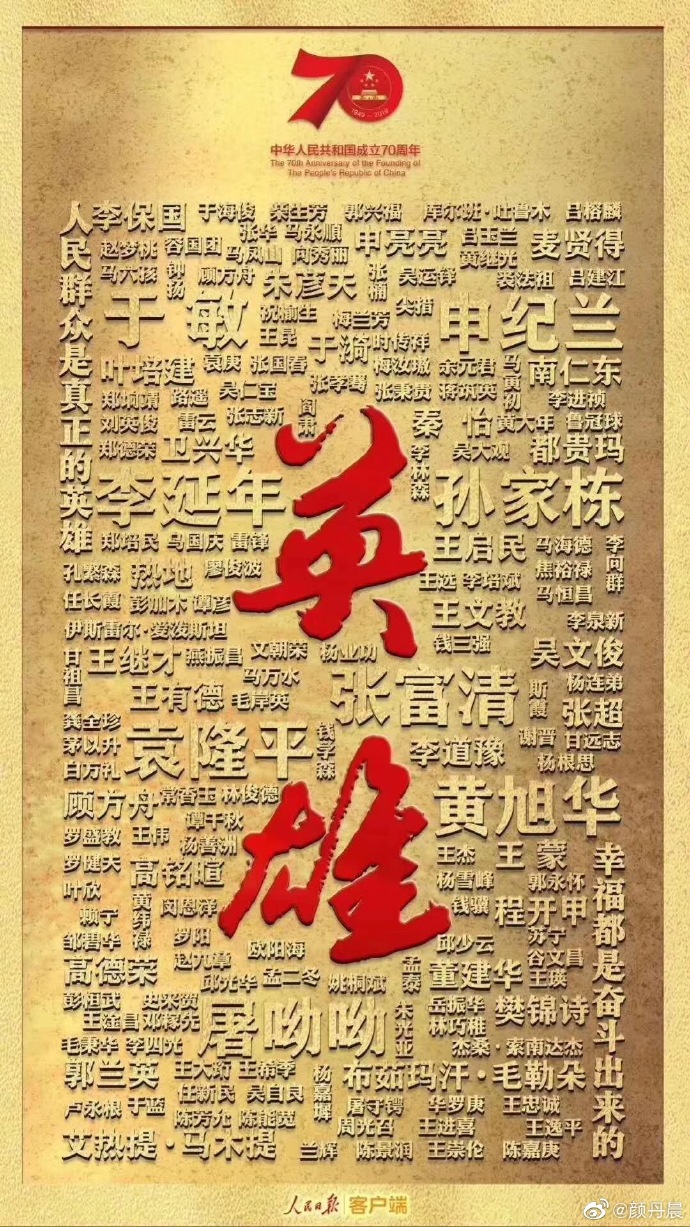 70
1949-2019
中华人民共和国成立70周年
The 70th Anniversary of the Founding of
The People's Republic of China
人民群众是真正的英雄
李保国 于海俊 柴生芳 郭兴福 库尔班·吐鲁木 吕榕麟
张华 马永顺 申亮亮 吕玉兰 麦贤得
赵梦桃 容国团 马凤山 向秀丽 黄继光
马六孩 钟扬 顾方舟 朱彦夫 张楠 吴运铎 裘法祖 吕建江
于敏 祝榆生 梅兰芳 尖措 申纪兰
王昆 于漪 时传祥
叶培建 袁庚 张国春 梅汝璈 余元君 马寅初 南仁东
郑垧靖 路遥 吴仁宝 张学骞 张秉贵 蒋筑英 李进祯
刘英俊 雷云 张志新 阎肃 秦怡 黄大年 鲁冠球
郑德荣 卫兴华 李林森 吴大观 都贵玛
李延年 孙家栋
英雄
郑培民 马国庆 雷锋 王启民 马海德 李向群
孔繁森 热地 廖俊波 王选 李培斌 焦裕禄
任长霞 彭加木 谭彦 王文教 马恒昌
伊斯雷尔·爱泼斯坦 钱三强 李泉新
甘祖昌 王继才 燕振昌 文朝荣 杨业功 吴文俊
马万水 张富清 斯霞 杨连弟
王有德 毛岸英 张超
龚全珍 袁隆平 钱学森 谢晋 甘远志
茅以升 李道豫 杨根思
白方礼
顾方舟 常香玉 林俊德 黄旭华
谭千秋
罗盛教 王伟 杨善洲 王杰 王蒙 幸福都是奋斗出来的
罗健夫 高铭暄 杨雪峰 郭永怀
叶欣 黄纬禄 闵恩泽 钱骥 程开甲
赖宁 罗阳 邱少云 苏宁
邹碧华 欧阳海 谷文昌
高德荣 赵九章 邱光华 孟二冬 姚桐斌 孟泰 董建华 王瑛
彭桓武 史来贺 屠呦呦 朱光亚 岳振华 樊锦诗
王淦昌 邓稼先 林巧稚
毛秉华 李四光 杰桑·索南达杰
郭兰英 王大珩 王希季 杨嘉墀 布茹玛汗·毛勒朵
卢永根 于蓝 任新民 吴自良 屠守锷 华罗庚 王忠诚
陈芳允 陈能宽 周光召 王进喜 王逸平
艾热提·马木提 兰辉 陈景润 王崇伦 陈嘉庚
人民日报 客户端
@颜丹晨